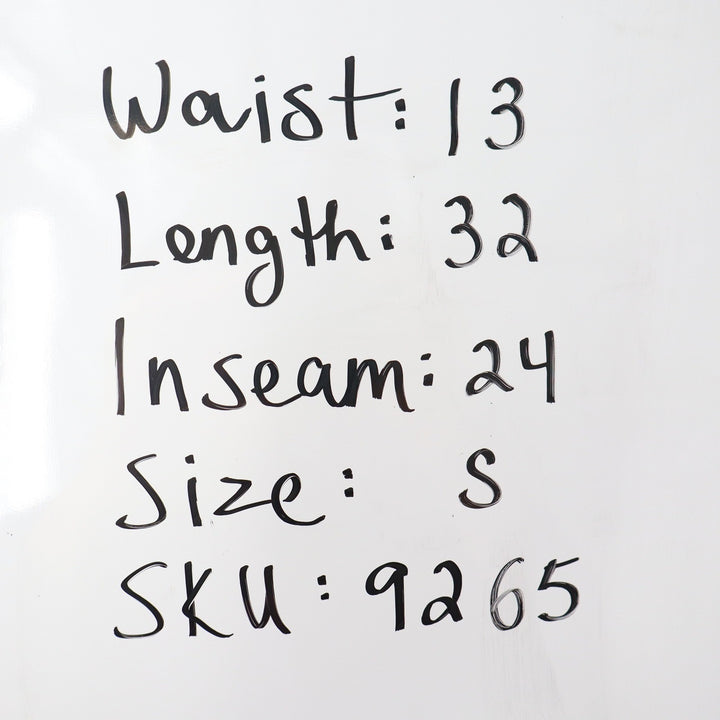 Waist: 13
Length: 32
Inseam: 24
Size: S
SKU: 9265